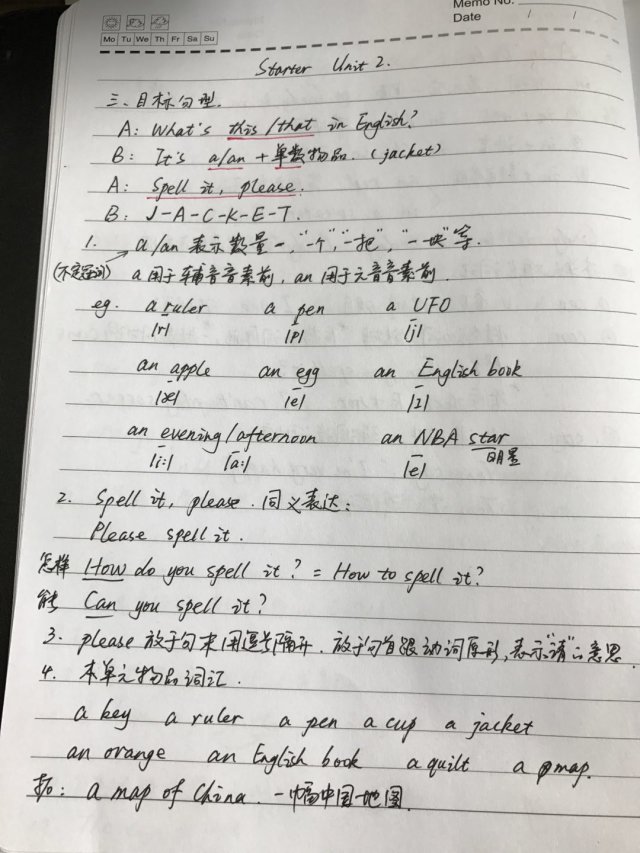 Memo No.
Date / /
Mo Tu We Th Fr Sa Su
Starter Unit 2.
三、目标句型.
A: What's this/that in English?
B: It's a/an + 单数物品. (jacket)
A: Spell it, please.
B: J-A-C-K-E-T.
1. a/an 表示数量一, "一个", "一把", "一块"等.
(不定冠词) a用于辅音音素前, an用于元音音素前.
eg. a ruler a pen a UFO
/r/ /p/ /j/
an apple an egg an English book
/æ/ /e/ /ɪ/
an evening/afternoon an NBA star
/i:/ /a:/ /e/ 明星
2. Spell it, please. 同义表达:
Please spell it.
怎样 How do you spell it? = How to spell it?
能 Can you spell it?
3. please 放于句末用逗号隔开. 放于句首跟动词原形, 表示"请"的意思.
4. 本单元物品词汇.
a key a ruler a pen a cup a jacket
an orange an English book a quilt a map.
拓: a map of China. 一幅中国地图.